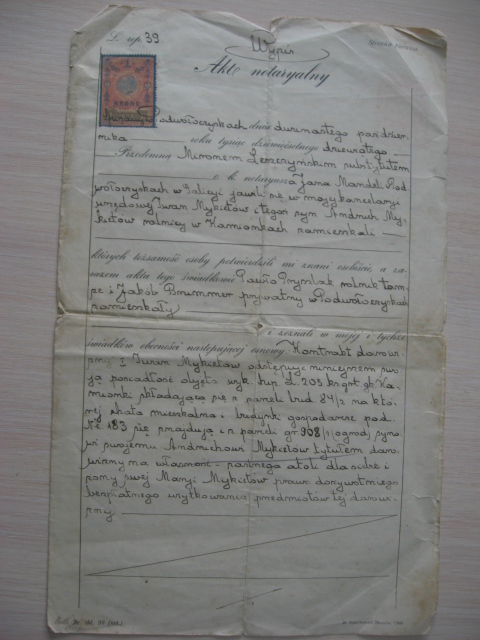 L. rep. 39.
Wypis
Akt notaryalny
w Podwołoczyskach dnia dwunastego paździer-
nika roku tysiąc dziewięćset dziewiątego
Przedemną Mironem Leszczyńskim substytutem
c. k. notaryusza Jana Mandel Pod
wołoczyskach w Galicyi jawili się w mojej kancelaryi
urzędowej Iwan Mykietów i tegoż syn Andruch My-
kietów rolnicy w Kamionkach zamieszkali
których tożsamość osoby potwierdzili mi znani osobiście, a za-
razem aktu tego świadkowie Pawło Prymlak rolnik tam-
że i Jakób Brummer prywatny w Podwołoczyskach
zamieszkały
i zeznali w mojej i tychże
świadków obecności następującej osnowy Kontrakt darowi-
zny I Iwan Mykietów odstępuje niniejszem swo-
ją posiadłość objętą wyk. hip. l. 205 ks. grt. gk. Ka-
mionki składającą się z parceli bud 84/2 na któ-
rej chata mieszkalna i budynk gospodarcze pod
NC 183 się znajdują i z parceli gr 968/1 ogród syno-
wi swojemu Andruchowi Mykietów tytułem daro-
wizny na własność zastrzega atoli dla siebie i
żony swej Maryi Mykietów prawo dożywotniego
bezpłatnego użytkowania przedmiotów tej darowi-
zny.